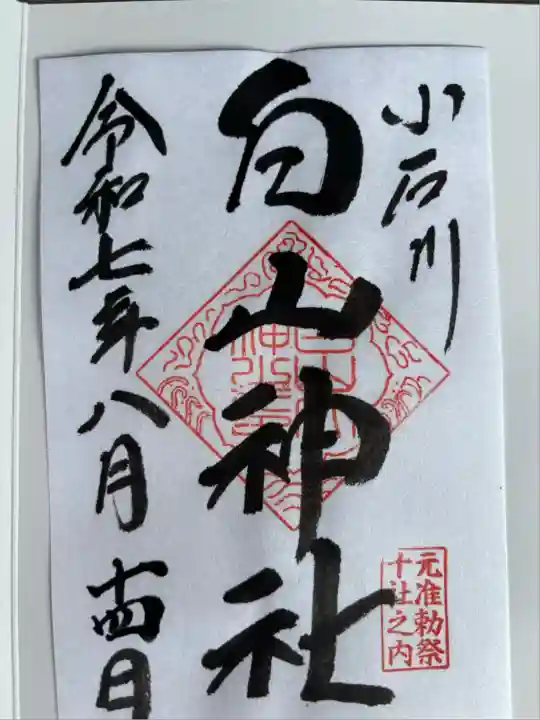 小石川
元准勅祭
十社之内
白山神社
令和七年八月十四日